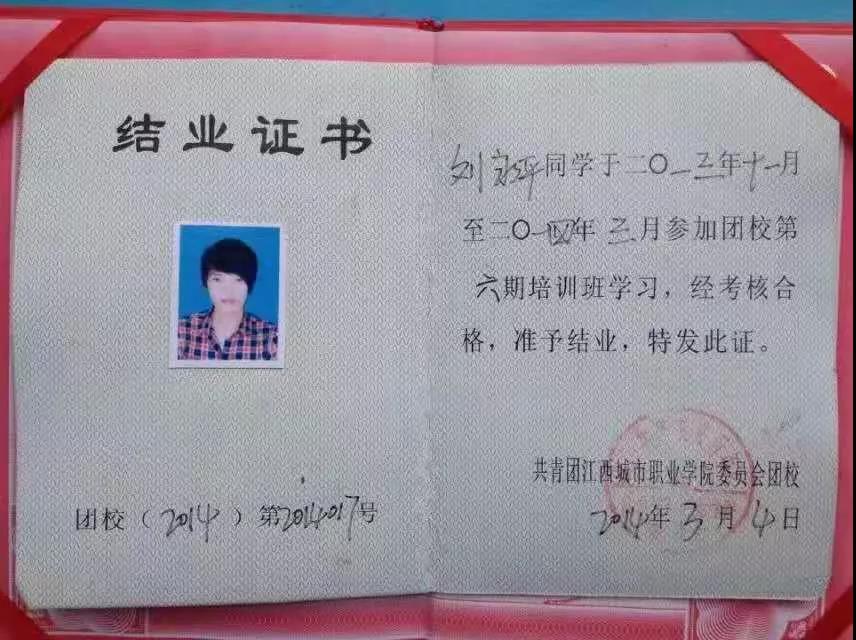 结业证书
团校（2014）第2014017号
刘永平同学于二〇一三年十一月
至二〇一四年三月参加团校第
六期培训班学习，经考核合
格，准予结业，特发此证。
共青团江西城市职业学院委员会团校
2014年3月4日